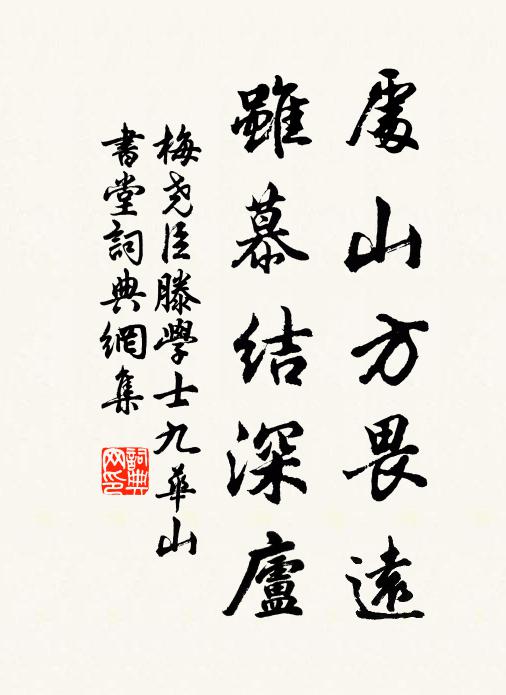 處山方畏遠
雖慕結深廬
梅尧臣滕學士九華山
書堂詞典網集
詞典
网印